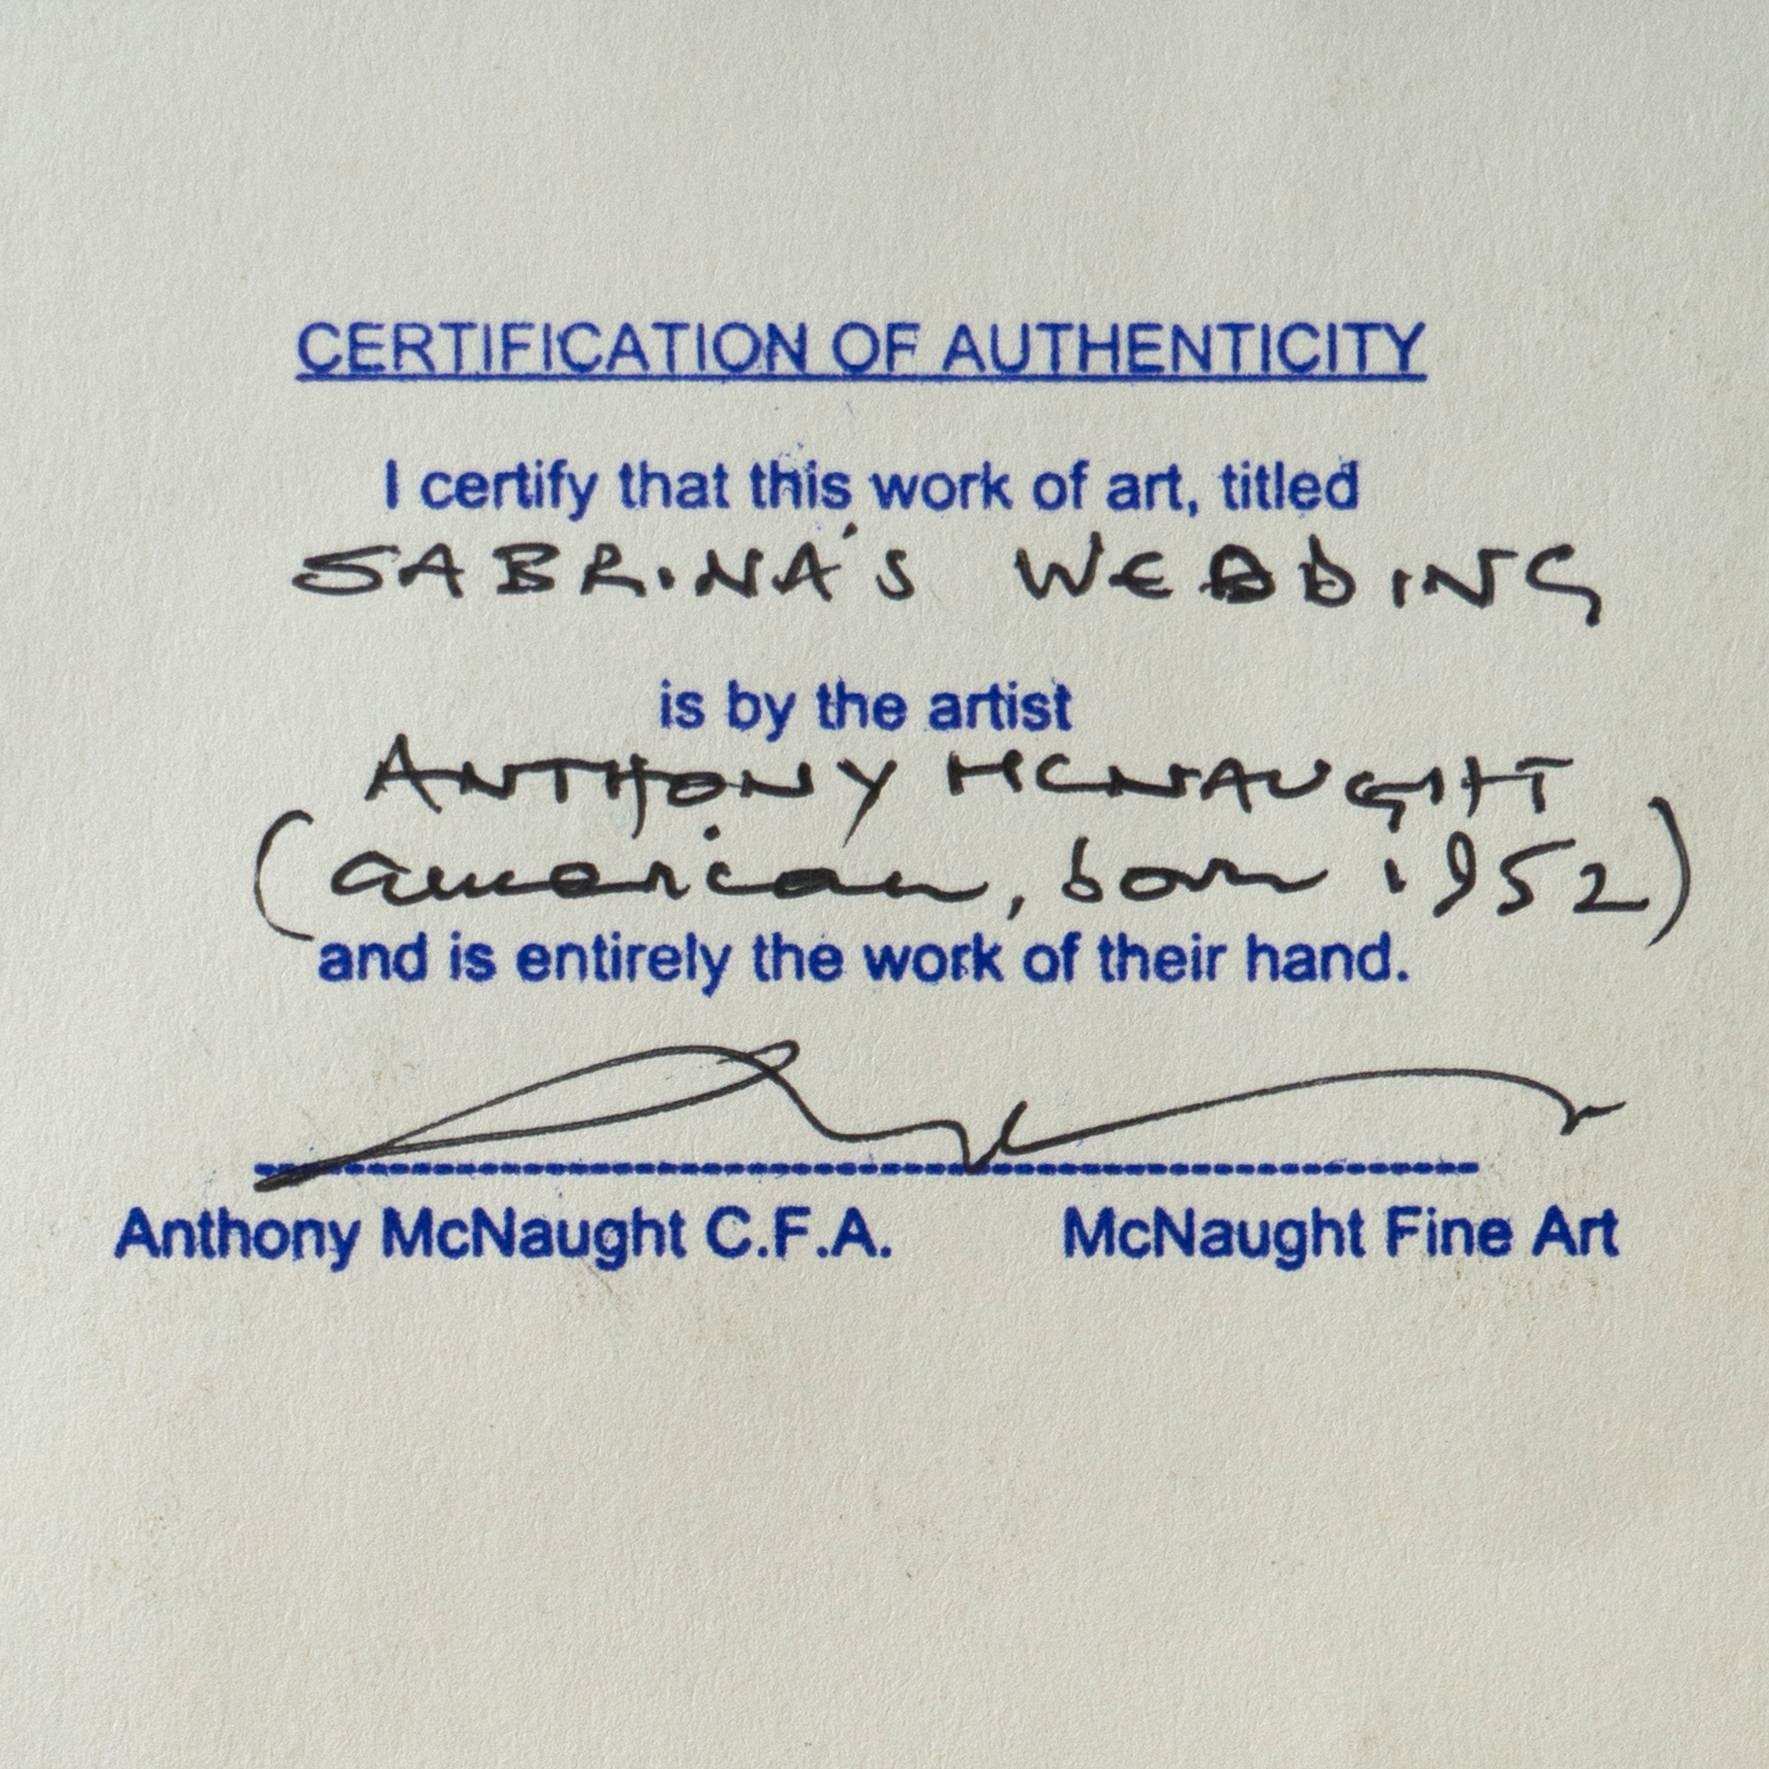 CERTIFICATION OF AUTHENTICITY
I certify that this work of art, titled
SABRINA'S WEDDING
is by the artist
ANTHONY MCNAUGHT
(american, born 1952)
and is entirely the work of their hand.
Anthony McNaught C.F.A. McNaught Fine Art